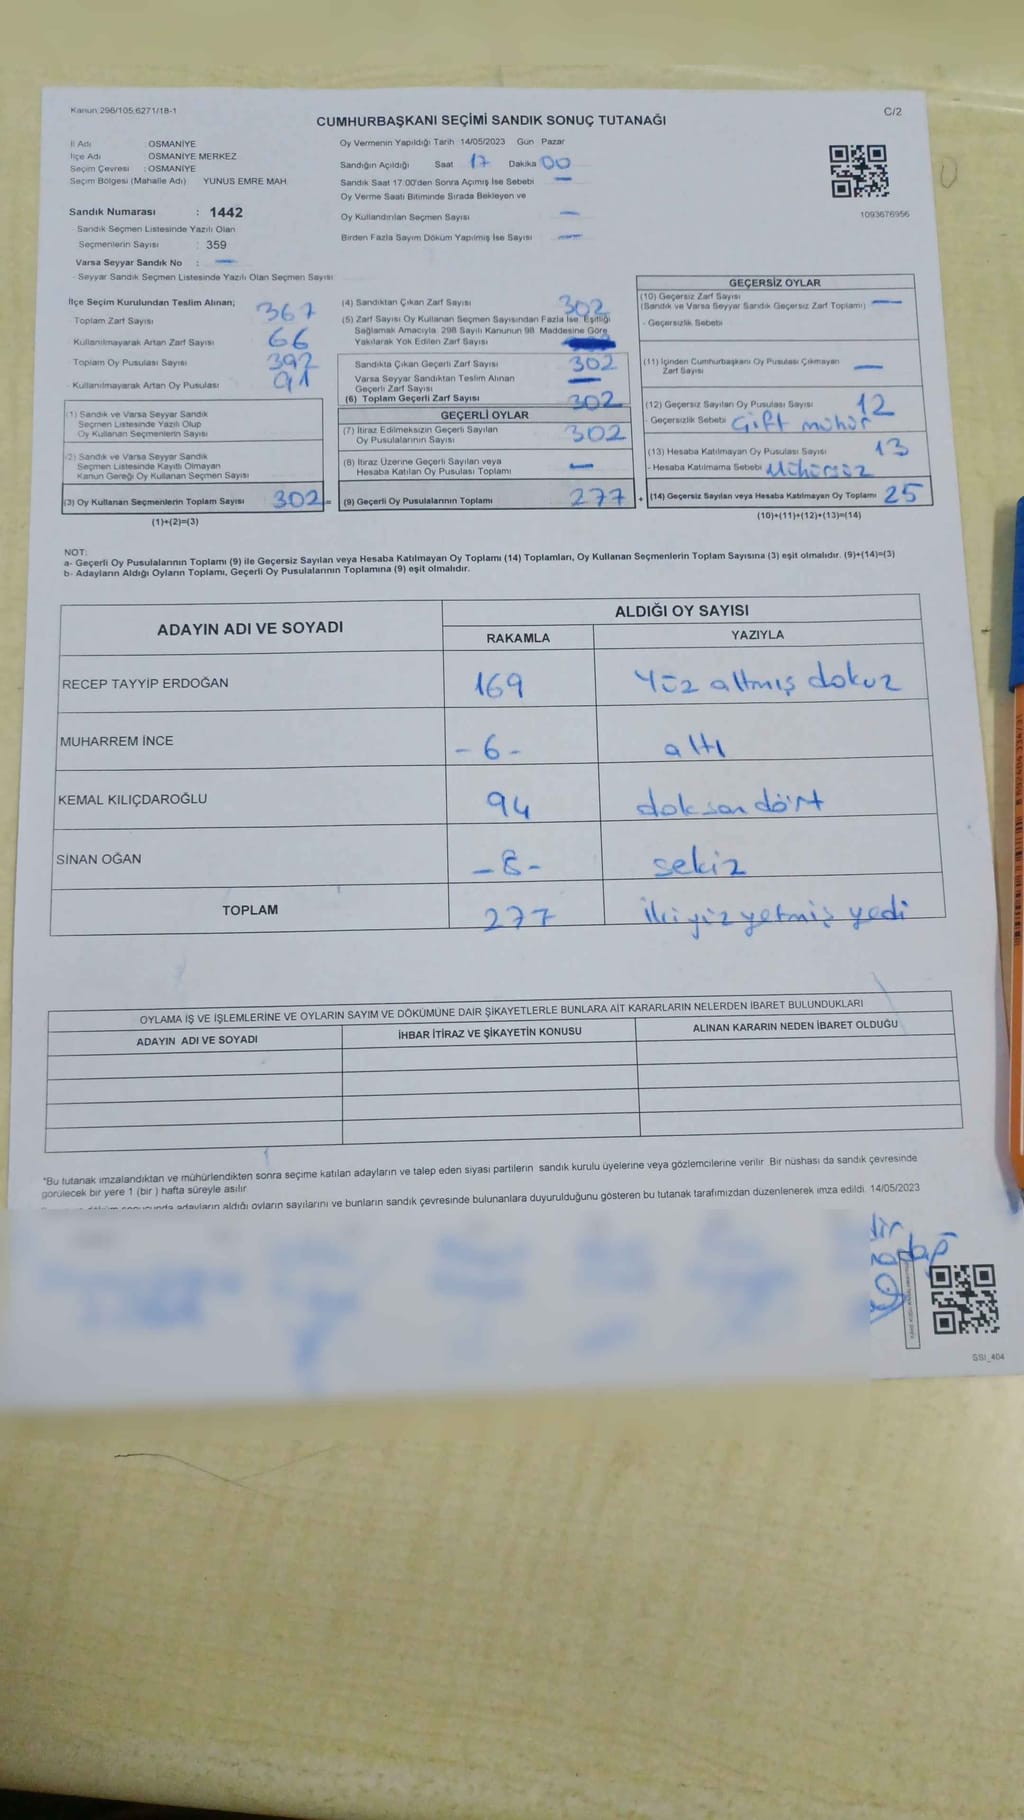 Kanun:298/105;6271/18-1
C/2
CUMHURBAŞKANI SEÇİMİ SANDIK SONUÇ TUTANAĞI
İl Adı : OSMANİYE
İlçe Adı : OSMANİYE MERKEZ
Seçim Çevresi : OSMANİYE
Seçim Bölgesi (Mahalle Adı) YUNUS EMRE MAH.
Sandık Numarası : 1442
- Sandık Seçmen Listesinde Yazılı Olan
Seçmenlerin Sayısı : 359
Varsa Seyyar Sandık No : —
- Seyyar Sandık Seçmen Listesinde Yazılı Olan Seçmen Sayısı
Oy Vermenin Yapıldığı Tarih 14/05/2023 Gün Pazar
Sandığın Açıldığı Saat 17 Dakika 00
Sandık Saat 17:00'den Sonra Açımış İse Sebebi —
Oy Verme Saati Bitiminde Sırada Bekleyen ve
Oy Kullandırılan Seçmen Sayısı —
Birden Fazla Sayım Döküm Yapılmış İse Sayısı —
1093676956
İlçe Seçim Kurulundan Teslim Alınan;
Toplam Zarf Sayısı 367
Kullanılmayarak Artan Zarf Sayısı 66
Toplam Oy Pusulası Sayısı 392
- Kullanılmayarak Artan Oy Pusulası 91
(1) Sandık ve Varsa Seyyar Sandık
Seçmen Listesinde Yazılı Olup
Oy Kullanan Seçmenlerin Sayısı
(2) Sandık ve Varsa Seyyar Sandık
Seçmen Listesinde Kayıtlı Olmayan
Kanun Gereği Oy Kullanan Seçmen Sayısı
(3) Oy Kullanan Seçmenlerin Toplam Sayısı 302 =
(1)+(2)=(3)
(4) Sandıktan Çıkan Zarf Sayısı 302
(5) Zarf Sayısı Oy Kullanan Seçmen Sayısından Fazla İse, Eşitliği
Sağlamak Amacıyla, 298 Sayılı Kanunun 98. Maddesine Göre
Yakılarak Yok Edilen Zarf Sayısı
Sandıkta Çıkan Geçerli Zarf Sayısı 302
Varsa Seyyar Sandıktan Teslim Alınan
Geçerli Zarf Sayısı —
(6) Toplam Geçerli Zarf Sayısı 302
GEÇERLİ OYLAR
(7) İtiraz Edilmeksizin Geçerli Sayılan
Oy Pusulalarının Sayısı 302
(8) İtiraz Üzerine Geçerli Sayılan veya
Hesaba Katılan Oy Pusulası Toplamı —
(9) Geçerli Oy Pusulalarının Toplamı 277 +
GEÇERSİZ OYLAR
(10) Geçersiz Zarf Sayısı
(Sandık ve Varsa Seyyar Sandık Geçersiz Zarf Toplamı) —
- Geçersizlik Sebebi
(11) İçinden Cumhurbaşkanı Oy Pusulası Çıkmayan
Zarf Sayısı —
(12) Geçersiz Sayılan Oy Pusulası Sayısı 12
- Geçersizlik Sebebi Çift mühür
(13) Hesaba Katılmayan Oy Pusulası Sayısı 13
- Hesaba Katılmama Sebebi Mühürsüz
(14) Geçersiz Sayılan veya Hesaba Katılmayan Oy Toplamı 25
(10)+(11)+(12)+(13)=(14)
NOT:
a- Geçerli Oy Pusulalarının Toplamı (9) ile Geçersiz Sayılan veya Hesaba Katılmayan Oy Toplamı (14) Toplamları, Oy Kullanan Seçmenlerin Toplam Sayısına (3) eşit olmalıdır. (9)+(14)=(3)
b- Adayların Aldığı Oyların Toplamı, Geçerli Oy Pusulalarının Toplamına (9) eşit olmalıdır.
ADAYIN ADI VE SOYADI
ALDIĞI OY SAYISI
RAKAMLA YAZIYLA
RECEP TAYYİP ERDOĞAN 169 Yüz altmış dokuz
MUHARREM İNCE -6- altı
KEMAL KILIÇDAROĞLU 94 doksan dört
SİNAN OĞAN -8- sekiz
TOPLAM 277 ikiyüz yetmiş yedi
OYLAMA İŞ VE İŞLEMLERİNE VE OYLARIN SAYIM VE DÖKÜMÜNE DAİR ŞİKAYETLERLE BUNLARA AİT KARARLARIN NELERDEN İBARET BULUNDUKLARI
ADAYIN ADI VE SOYADI İHBAR İTİRAZ VE ŞİKAYETİN KONUSU ALINAN KARARIN NEDEN İBARET OLDUĞU
*Bu tutanak imzalandıktan ve mühürlendikten sonra seçime katılan adayların ve talep eden siyasi partilerin sandık kurulu üyelerine veya gözlemcilerine verilir. Bir nüshası da sandık çevresinde
görülecek bir yere 1 (bir) hafta süreyle asılır.
adayların aldığı oyların sayılarını ve bunların sandık çevresinde bulunanlara duyurulduğunu gösteren bu tutanak tarafımızdan düzenlenerek imza edildi. 14/05/2023
SSI_404